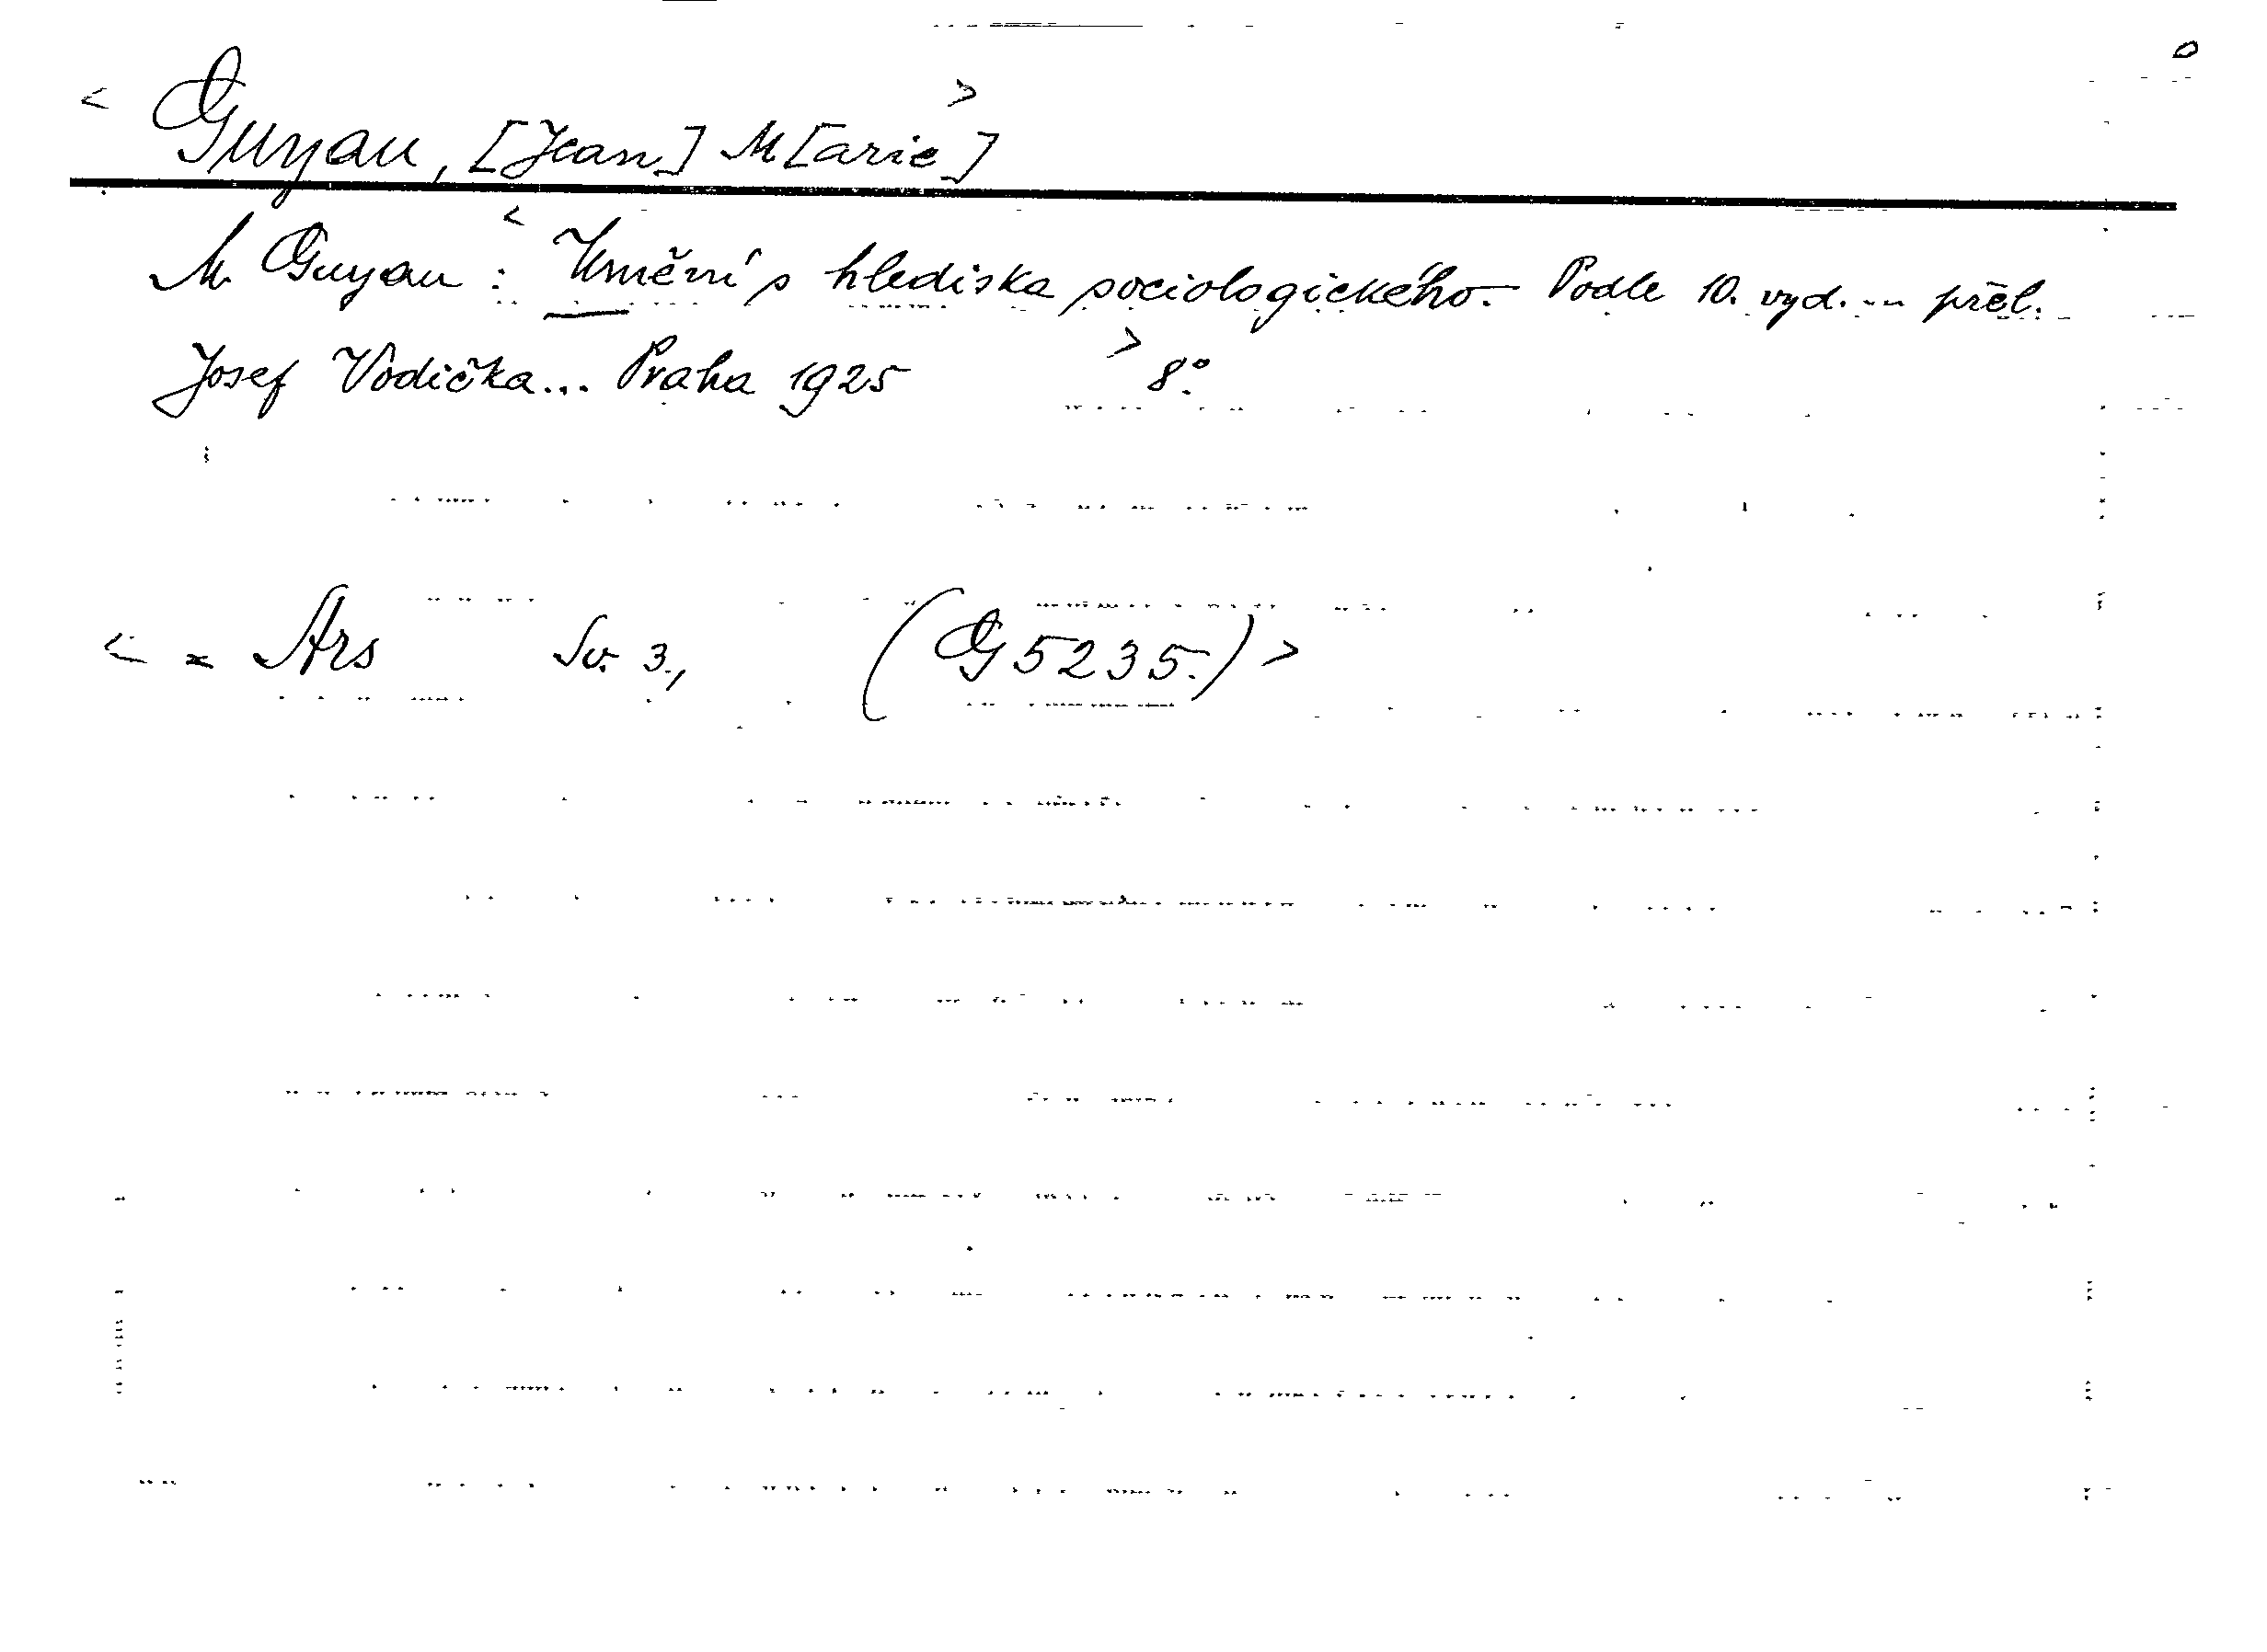 < Guyau, [Jean] M[arie] >
M. Guyau : < Umění s hlediska sociologického. - Podle 10. vyd. ... přel.
Josef Vodička... Praha 1925 > 8°.
< = Ars Sv. 3., (G 5235.) >